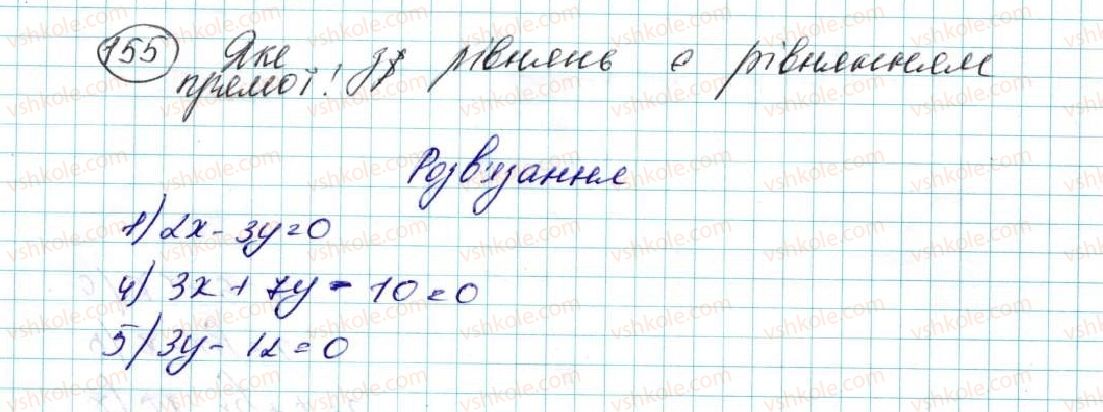 155 Яке з рівнянь є рівнянням
прямої!
Розв'язання
1) 2x - 3y = 0
4) 3x + 7y - 10 = 0
5) 3y - 12 = 0